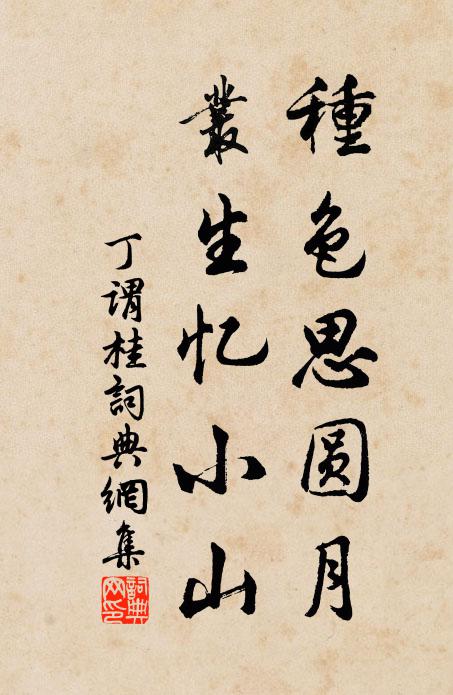 種色思圆月
叢生忆小山
丁谓桂詞典網集
詞典网印